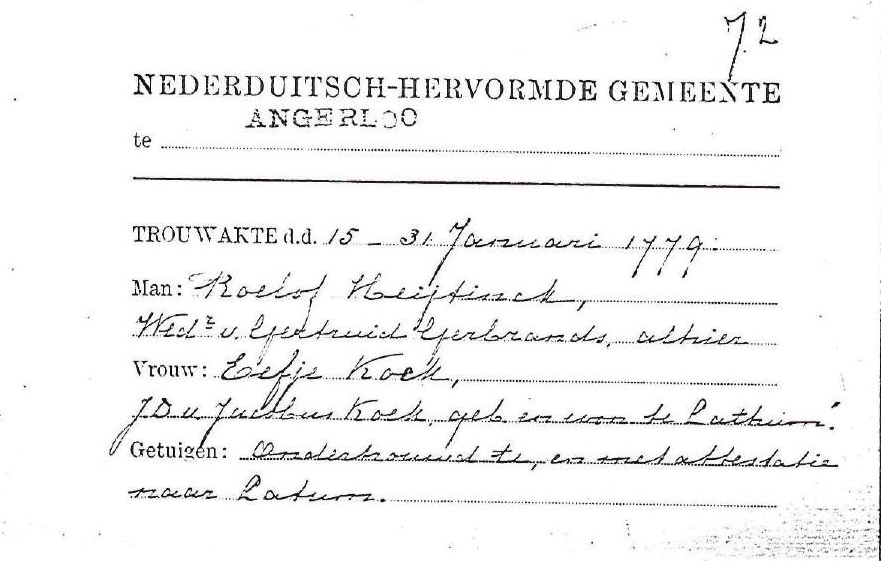 72
NEDERDUITSCH-HERVORMDE GEMEENTE
ANGERLOO
te
TROUWAKTE d.d. 15 - 31 Januari 1779.
Man: Roelof Heijtinck,
Wedr v. Gertruid Gerbrands, alhier
Vrouw: Eefje Kock,
J D v. Jacobus Kock, geb en won te Lathum.
Getuigen: Ondertrouwd te, en met attestatie
naar Latum.